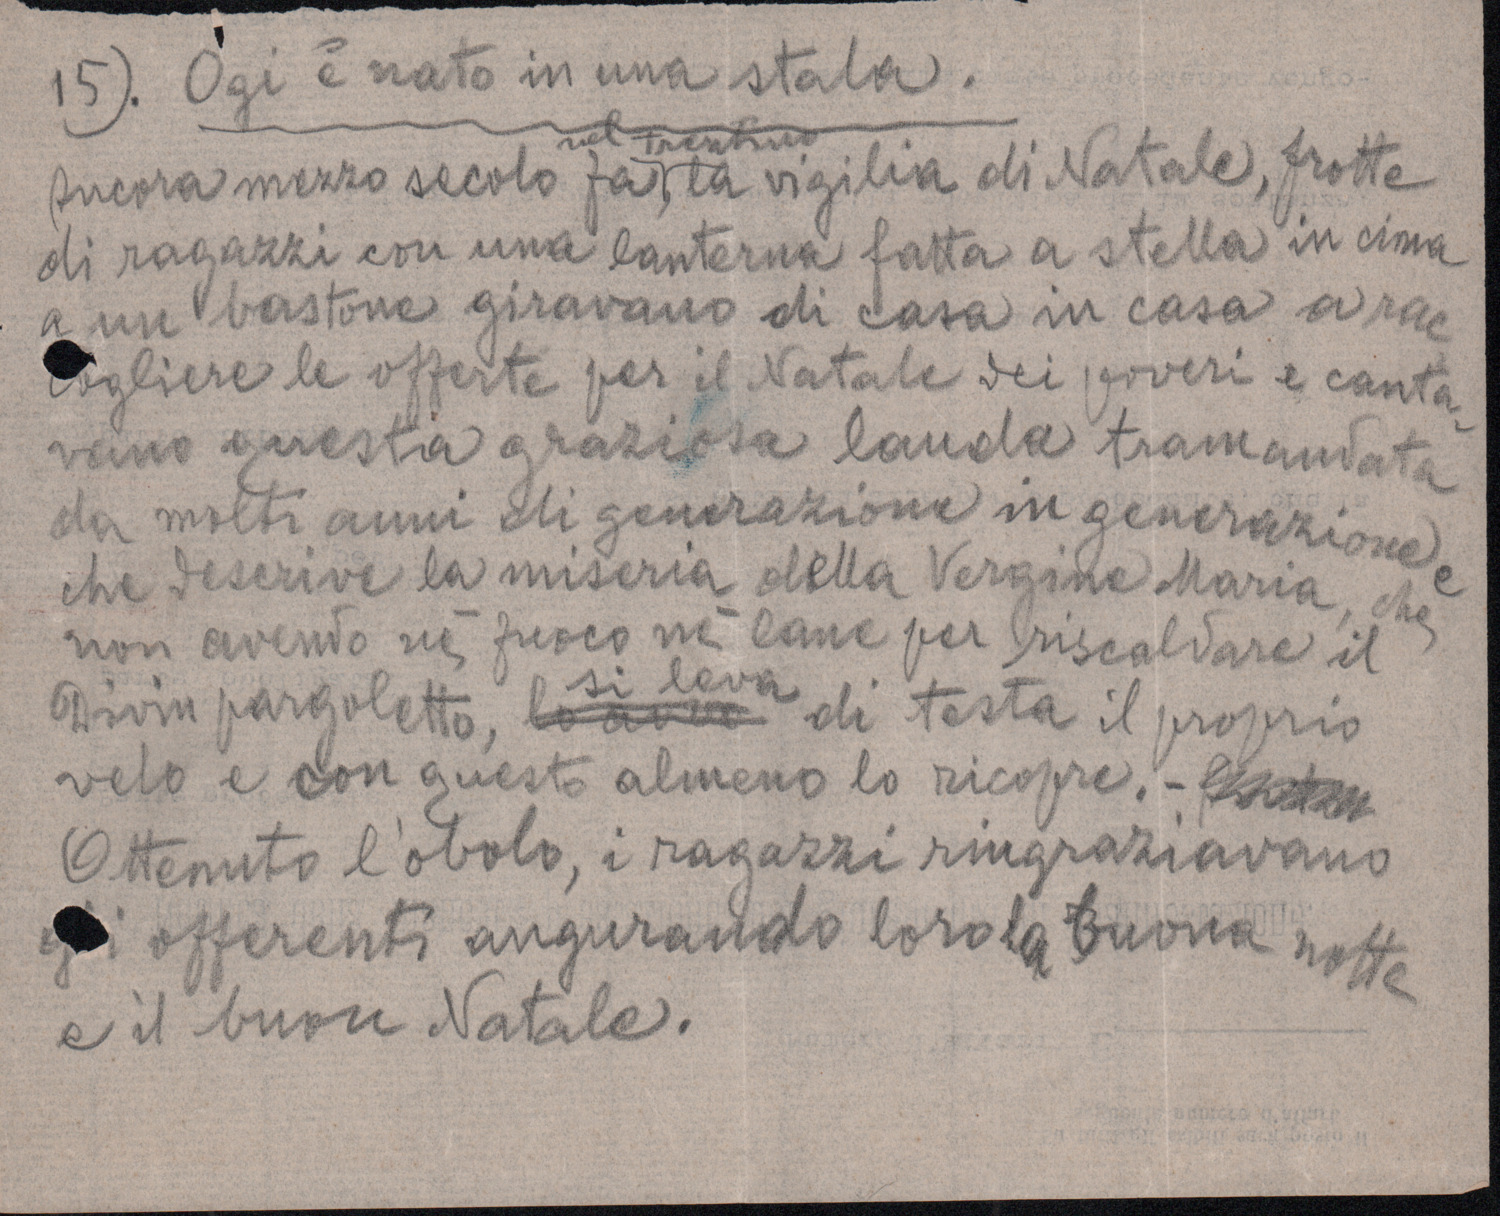 15). Ogi è nato in una stala.
nel Trentino
Ancora mezzo secolo fa, la vigilia di Natale, frotte
di ragazzi con una lanterna fatta a stella in cima
a un bastone giravano di casa in casa a rac
cogliere le offerte per il Natale dei poveri e canta-
vano questa graziosa lauda tramandata
da molti anni di generazione in generazione e
che descrive la miseria della Vergine Maria, che,
non avendo nè fuoco nè lane per riscaldare il
Divin pargoletto, si leva di testa il proprio
velo e con questo almeno lo ricopre. -
Ottenuto l'obolo, i ragazzi ringraziavano
gli offerenti augurando loro la buona notte
e il buon Natale.